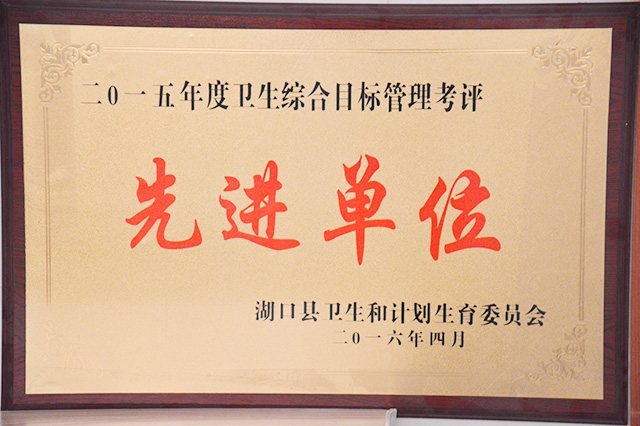 二0一五年度卫生综合目标管理考评
先进单位
湖口县卫生和计划生育委员会
二0一六年四月